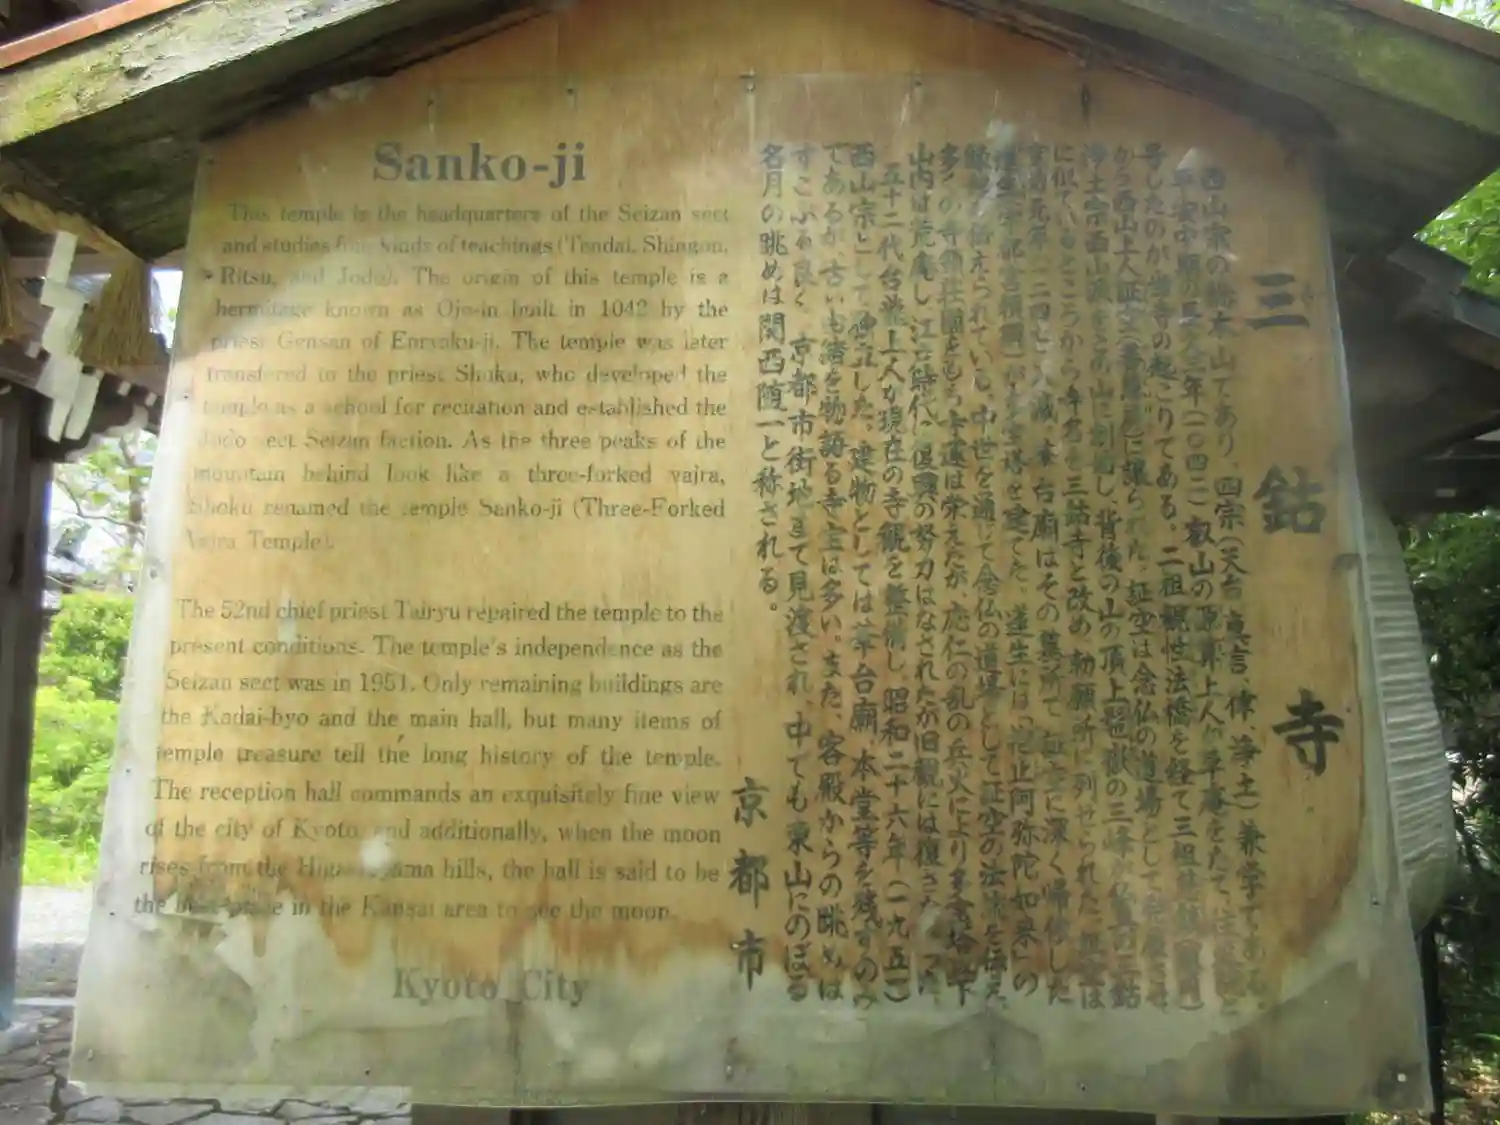 Sanko-ji
This temple is the headquarters of the Seizan sect
and studies four kinds of teachings (Tendai, Shingon,
Ritsu, and Jodo). The origin of this temple is a
hermitage known as Ojo-in built in 1042 by the
priest Gensan of Enryaku-ji. The temple was later
transfered to the priest Shoku, who developed the
temple as a school for recitation and established the
Jodo sect Seizan faction. As the three peaks of the
mountain behind look like a three-forked vajra,
Shoku renamed the temple Sanko-ji (Three-Forked
Vajra Temple).
The 52nd chief priest Tairyu repaired the temple to the
present conditions. The temple's independence as the
Seizan sect was in 1951. Only remaining buildings are
the Kadai-byo and the main hall, but many items of
temple treasure tell the long history of the temple.
The reception hall commands an exquisitely fine view
of the city of Kyoto, and additionally, when the moon
rises from the Higashiyama hills, the hall is said to be
the best place in the Kansai area to see the moon.
Kyoto City
三鈷寺
西山宗の総本山であり、四宗(天台、真言、律、浄土)兼学である。
平安中期の長久三年(一〇四二)叡山の源算上人が草庵をたて、往生院と
号したのが当寺の起こりである。二祖観性法橋を経て三祖慈鎮
から西山上人証空(善慧房)に譲られた。証空は念仏の道場として発展させ、
浄土宗西山派をこの山に創め、背後の山の頂上の三峰が仏具の三鈷
に似ているところから寺名を三鈷寺と改め、勅願所に列せられた。証空は
宝治元年一二四七入滅、華台廟はその墓所で証空に深く帰依した
宇都宮頼綱)が多宝塔を建てた。蓮生には「抱止阿弥陀如来」の
伝えられている。中世を通じて念仏の道場として証空の法流を伝え、
多くの寺領荘園をもち寺運は栄えたが、応仁の乱の兵火により
山内は荒廃し、江戸時代に復興の努力はなされたが旧観には復さなかった。
五十二代台龍上人が現在の寺観を整備し、昭和二十六年(一九五一)
西山宗として独立した。建物としては華台廟、本堂等を残すのみ
であるが、古い由緒を物語る寺宝は多い。また、客殿からの眺めは
すこぶる良く、京都市街地まで見渡され、中でも東山にのぼる
名月の眺めは関西随一と称される。
京都市